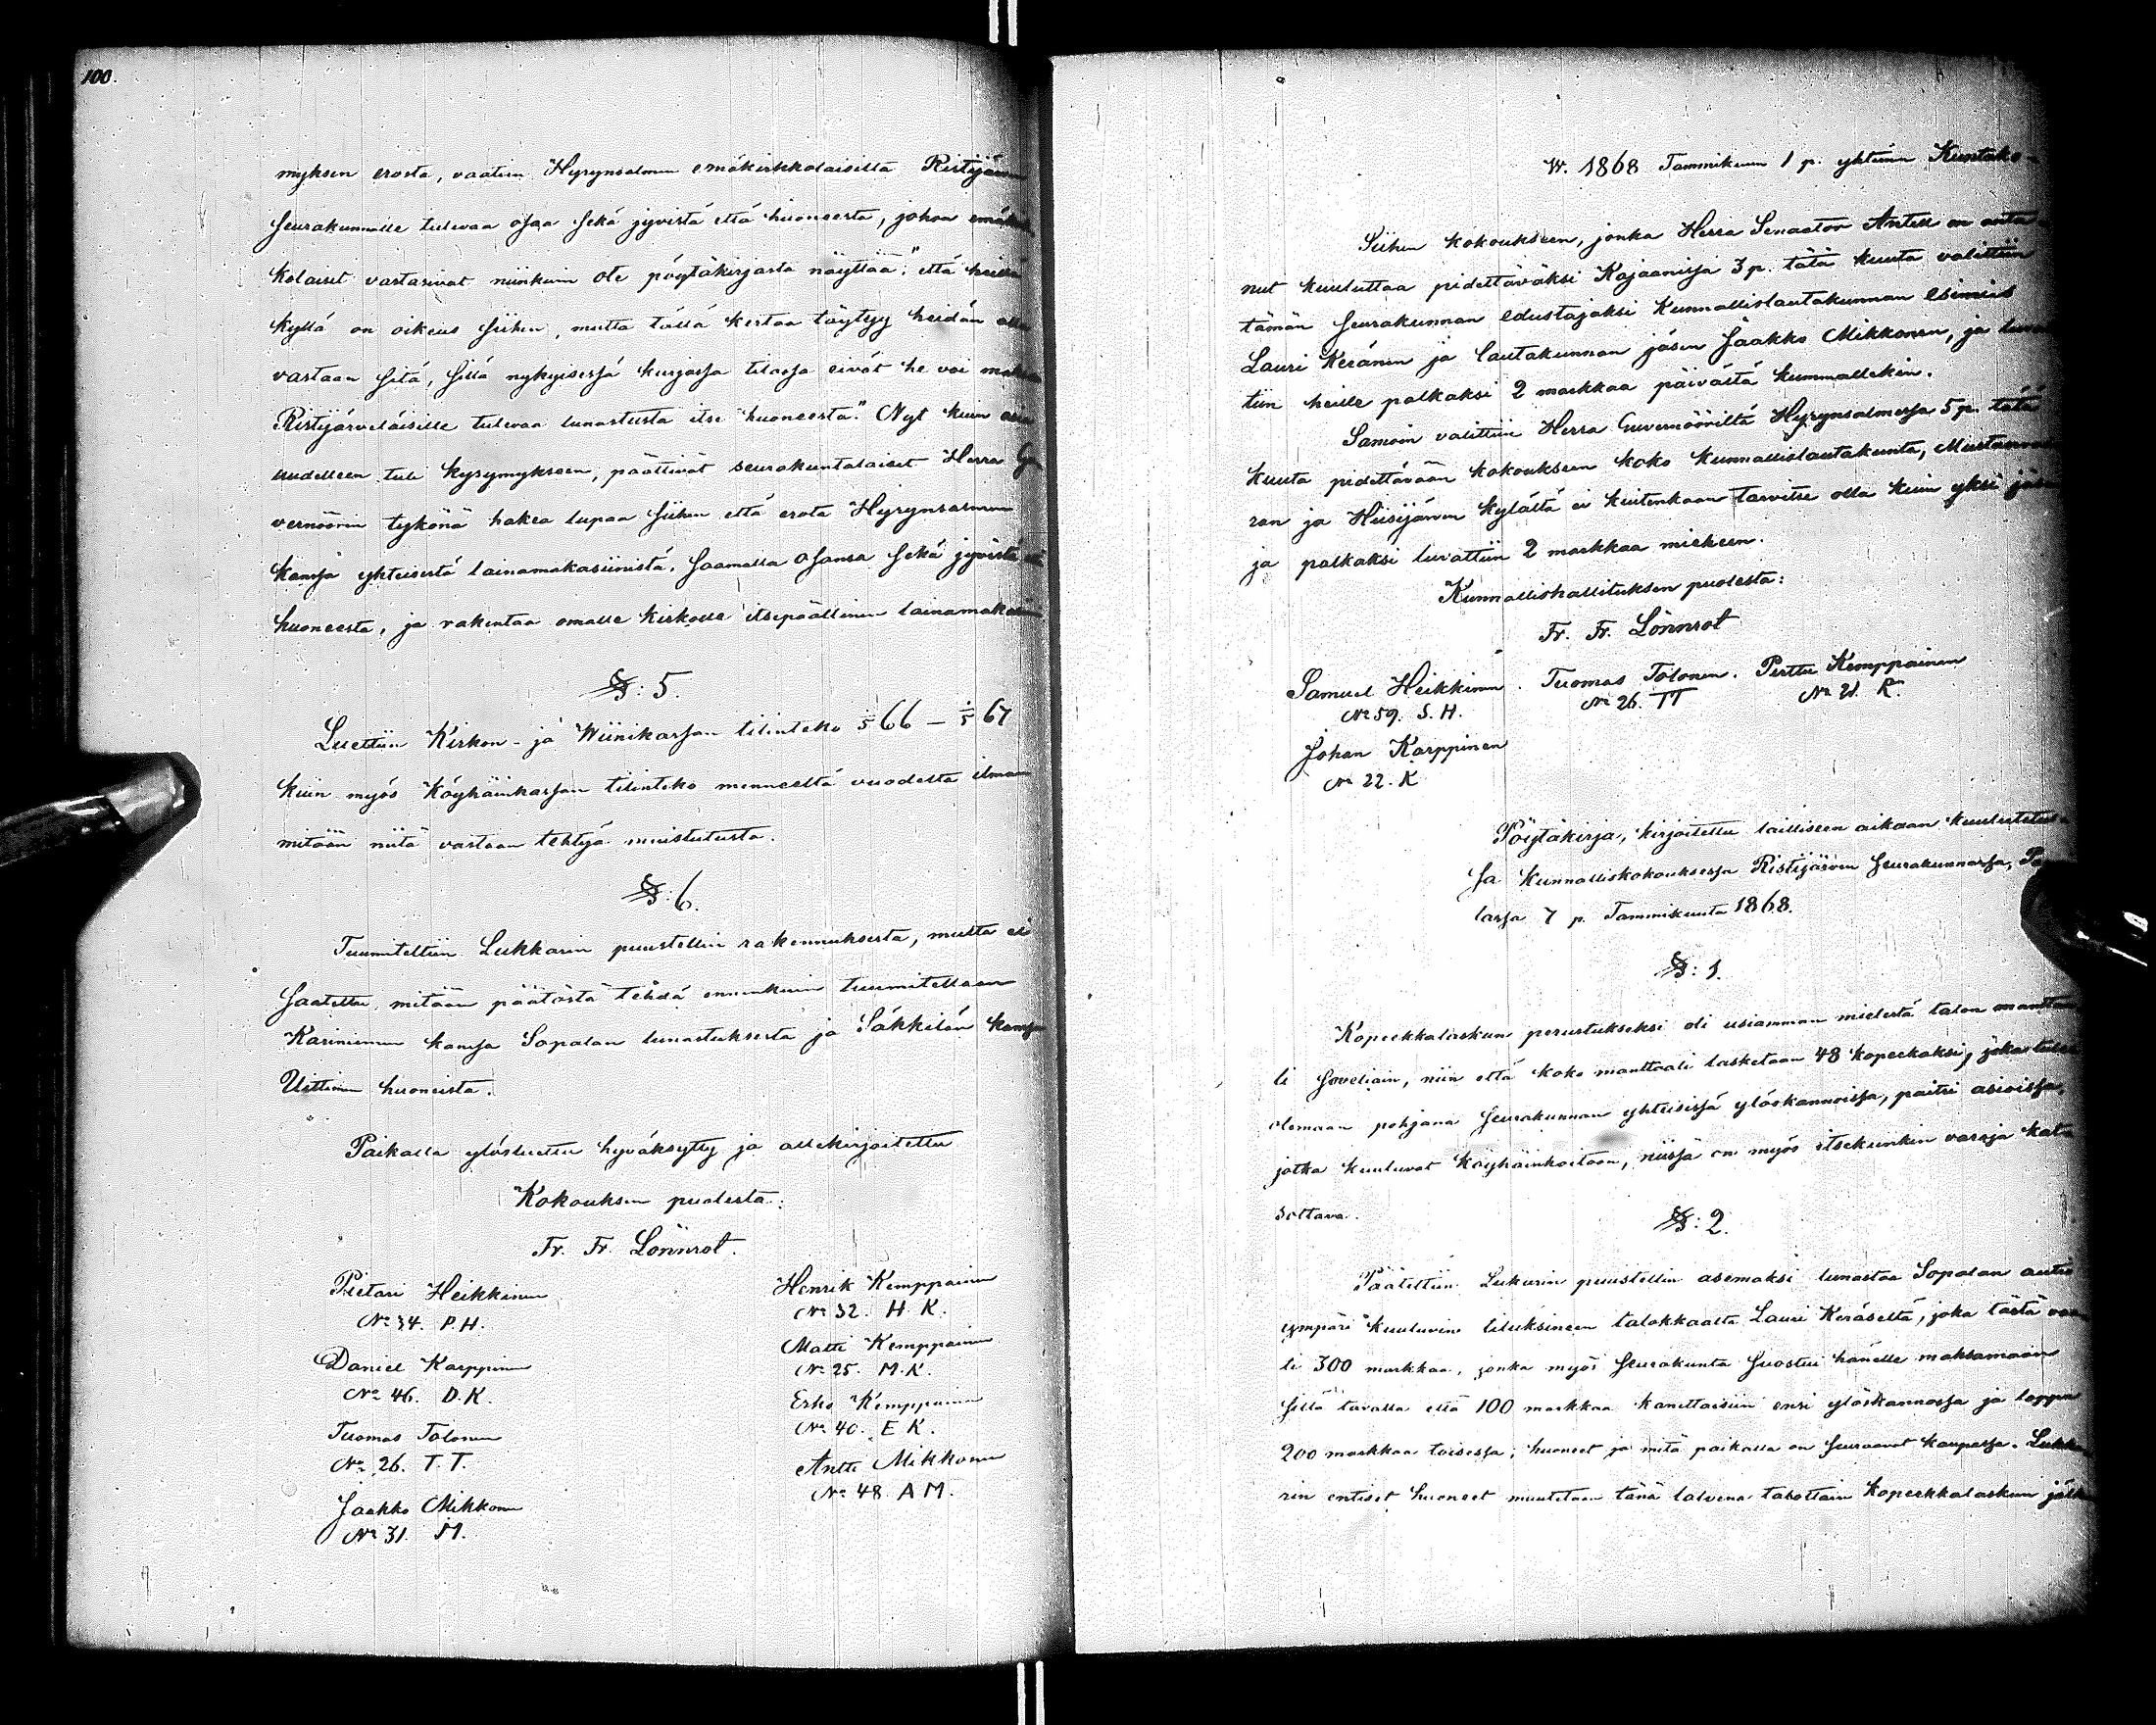 100.
myksen erosta, vaatien Hyrynsalmen emäkirkkolaisilta Ristijärven
seurakunnalle tulevaa osaa sekä jyvistä että huoneesta, johon
kolaiset vastasivat niinkuin ote pöytäkirjasta näyttää: "että heillä
kyllä on oikeus siihen, mutta tällä kertaa täytyy heidän olla
vastaan sitä, sillä nykyisessä kurjassa tilassa eivät he voi maksaa
Ristijärveläisille tulevaa lunastusta itse huoneesta." Nyt kuin asia
uudelleen tuli kysymykseen, päättivät seurakuntalaiset Herra Gu
vernöörin tykönä hakea lupaa siihen että erota Hyrynsalmen
kanssa yhteisestä lainamakasiinistä, saamalla osansa sekä jyvistä
huoneesta, ja rakentaa omalle kirkolle itsepäällinen lainamakasiini
§: 5.
Luettiin Kirkon- ja Wiinikassan tilinteko 66 — 67
kuin myös Köyhäinkassan tilinteko menneeltä vuodelta ilman
mitään niitä vastaan tehtyä muistutusta.
§: 6.
Tuumiteltiin Lukkarin puustellin rakennuksesta, mutta ei
saatettu mitään päätöstä tehdä ennenkuin tuumitellaan
Kariniemen kanssa Sopalan lunastuksesta ja Säkkilän kanssa
Uittimen huoneista.
Paikalla ylösluettu hyväksytty ja allekirjoitettu
Kokouksen puolesta:
Fr. Fr. Lönnrot.
Pietari Heikkinen Henrik Kemppainen
No 34. P.H. No 32. H. K.
Daniel Karppinen Matti Kemppainen
No 46. D.K. No 25. M.K.
Tuomas Tolonen Erko Kemppainen
No 26. T.T. No 40. E K.
Jaakko Mikkonen Antti Mikkonen
No 31. M. No 48. A M.
W. 1868 Tammikuun 1 p. yhteinen Kuntako-
Siihen kokoukseen, jonka Herra Senaator Antell on anta
nut kuuluttaa pidettäväksi Kajaanissa 3 p. tätä kuuta valittiin
tämän seurakunnan edustajaksi Kunnallislautakunnan esimies
Lauri Keränen ja lautakunnan jäsen Jaakko Mikkonen, ja luvat
tiin heille palkaksi 2 markkaa päivästä kummallekin.
Samoin valittiin Herra Guvernööriltä Hyrynsalmessa 5 p. tätä
kuuta pidettävään kokoukseen koko kunnallislautakunta, Mustanvaa
ran ja Hiisijärven kylältä ei kuitenkaan tarvitse olla kuin yksi jäsen
ja palkaksi luvattiin 2 markkaa mieheen.
Kunnallishallituksen puolesta:
Fr. Fr. Lönnrot
Samuel Heikkinen. Tuomas Tolonen. Perttu Kemppainen
No 59. S. H. No 26. TT No 21. K.
Johan Karppinen
No 22. K
Pöytäkirja, kirjoitettu lailliseen aikaan kuulutetus
sa kunnalliskokouksessa Ristijärven seurakunnassa, Pap
lassa 7 p. Tammikuuta 1868.
§: 1.
Kopeekkalaskun perustukseksi oli usiamman mielestä talon manttaa
li soveliain, niin että koko manttaali lasketaan 48 kopeekaksi, joka tulee
olemaan pohjana seurakunnan yhteisissä ylöskannoissa, paitsi asioissa,
jotka kuuluvat köyhäinhoitoon, niissä on myös itsekunkin varoja kat
sottava.
§: 2.
Päätettiin Lukarin puustellin asemaksi lunastaa Sopalan autio
ympäri kuuluvine tiluksineen talokkaalta Lauri Keräseltä, joka tästä vaa
ti 300 markkaa, jonka myös seurakunta suostui hänelle maksamaan
sillä tavalla että 100 markkaa kanettaisiin ensi ylöskannossa ja loppu
200 markkaa toisessa; huoneet ja mitä paikalla on seuraavat kaupassa. Lukka
rin entiset huoneet muutetaan tänä talvena talottain kopeekkalaskun jälk